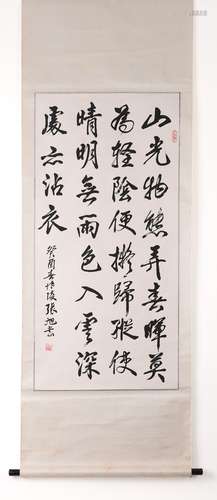 山光物態弄春暉莫
為輕陰便擬歸縱使
晴明無雨色入雲深
處亦沾衣
癸酉春張旭